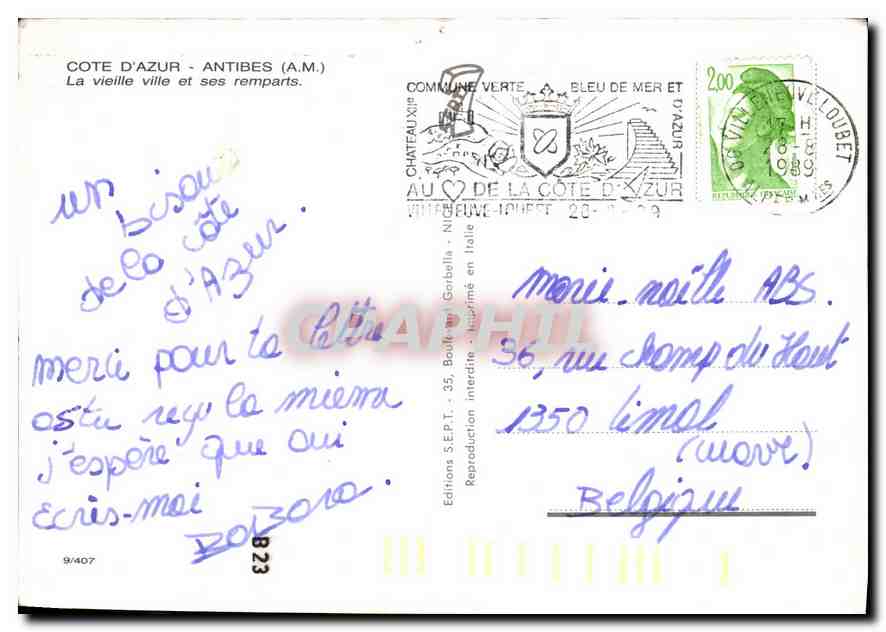 COTE D'AZUR - ANTIBES (A.M.)
La vieille ville et ses remparts.
un
bisou
de la côte
d'Azur.
merci pour ta lettre
astu reçu la mienne
j'espère que oui
Ecris-moi
BaBara.
9/407
B23
Editions S.E.P.T. - 35, Boulevard Gorbella - NICE
Reproduction interdite - Imprimé en Italie
COMMUNE VERTE BLEU DE MER ET
D'AZUR
CHATEAU XIIe
AU DE LA CÔTE D'AZUR
VILLENEUVE-LOUBET
2,00
REPUBLIQUE FRANÇAISE
06 VILLENEUVE LOUBET
17 H
8-8
1989
ALPES MMES
Marie-noëlle ABS.
36, rue champ du Haut
1350 Limal
(wavre)
Belgique
CPAPHIL